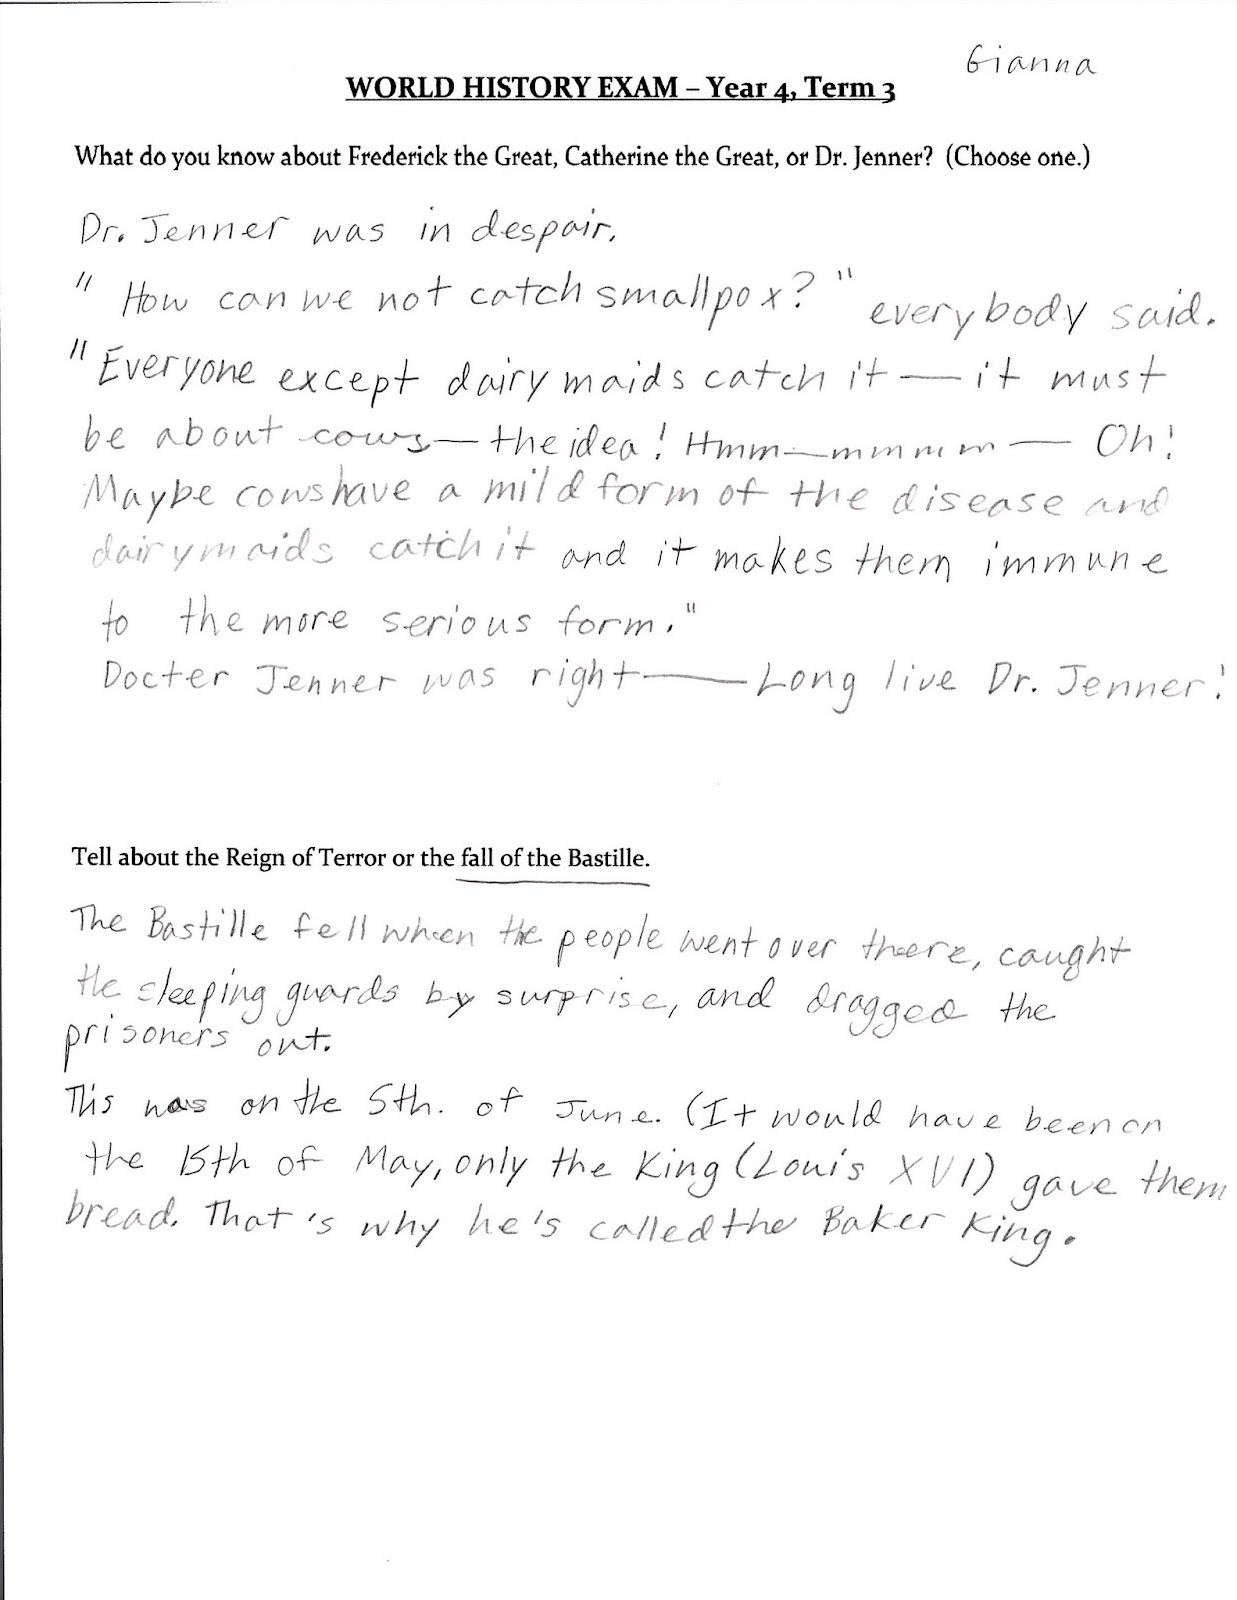 Gianna
WORLD HISTORY EXAM – Year 4, Term 3
What do you know about Frederick the Great, Catherine the Great, or Dr. Jenner? (Choose one.)
Dr. Jenner was in despair.
"How can we not catch smallpox?" everybody said.
"Everyone except dairy maids catch it — it must
be about cows — the idea! Hmm—mmmmm — Oh!
Maybe cows have a mild form of the disease and
dairymaids catch it and it makes them immune
to the more serious form."
Docter Jenner was right — Long live Dr. Jenner!
Tell about the Reign of Terror or the fall of the Bastille.
The Bastille fell when the people went over there, caught
the sleeping guards by surprise, and dragged the
prisoners out.
This was on the 5th. of June. (It would have been on
the 15th of May, only the King (Louis XVI) gave them
bread. That's why he's called the Baker King.